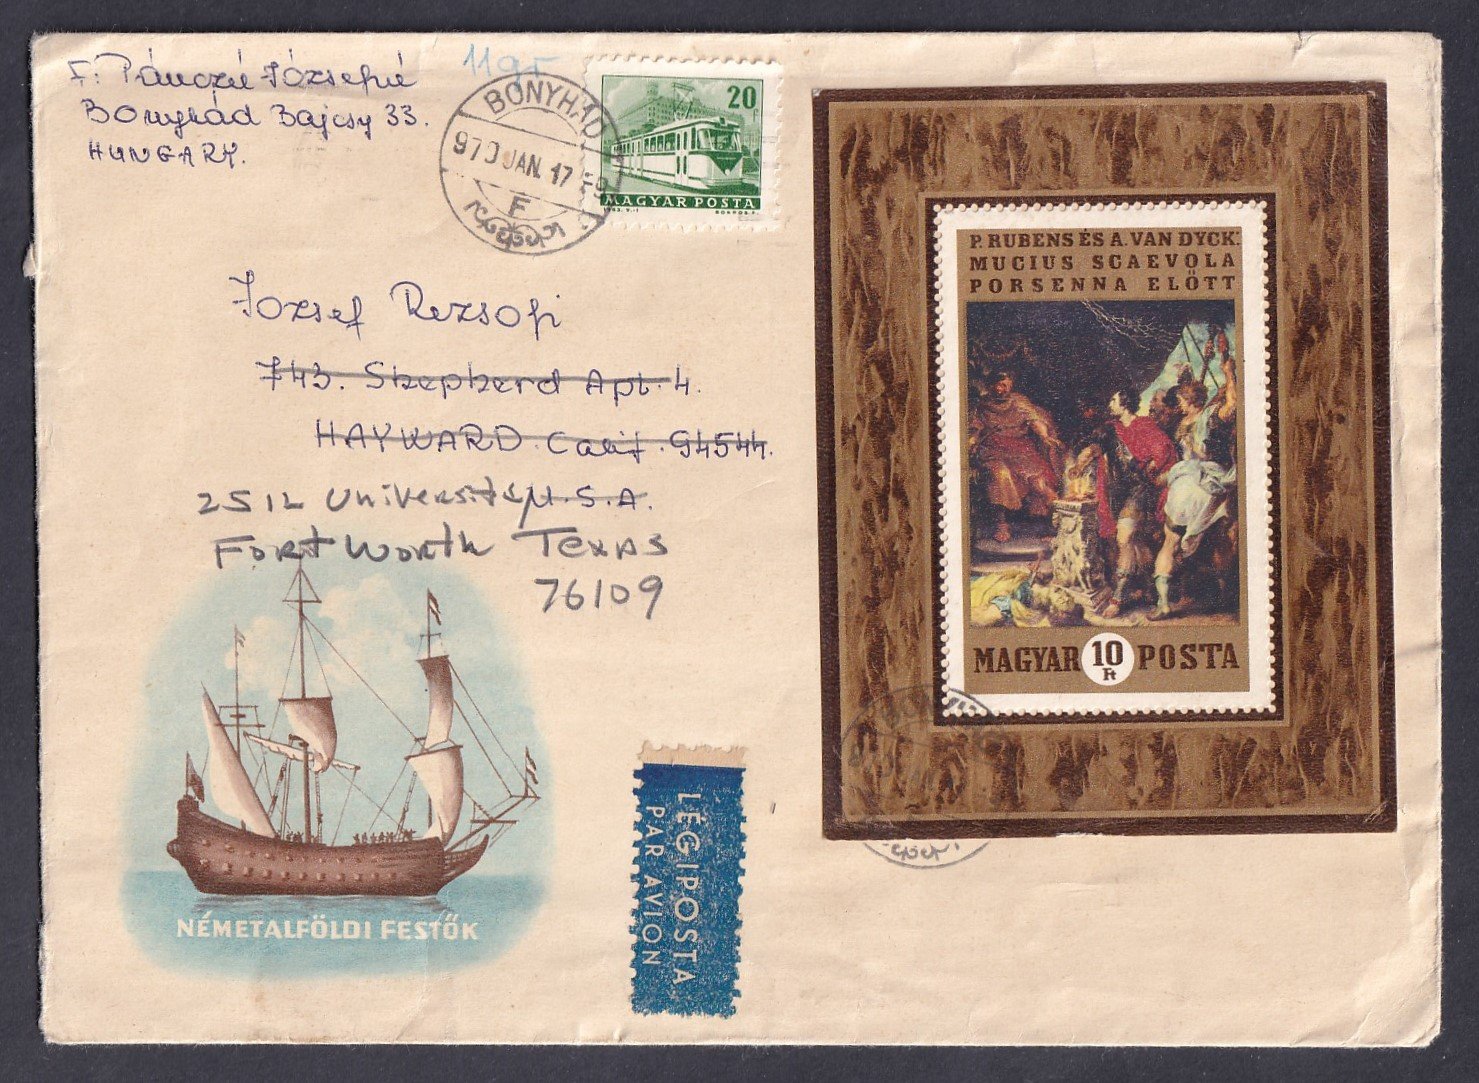 F: Pánczé Józsefné
Bonyhád Bajcsy 33.
HUNGARY.
11gr
BONYHÁD
970 JAN. 17
F
20f
MAGYAR POSTA
József Rezsofi
743. Shepherd Apt. 4.
HAYWARD. Calif. 94544.
U.S.A.
2512 University
Fort Worth Texas
76109
P. RUBENS ÉS A. VAN DYCK:
MUCIUS SCAEVOLA
PORSENNA ELŐTT
MAGYAR 10 Ft POSTA
LÉGIPOSTA
PAR AVION
NÉMETALFÖLDI FESTŐK